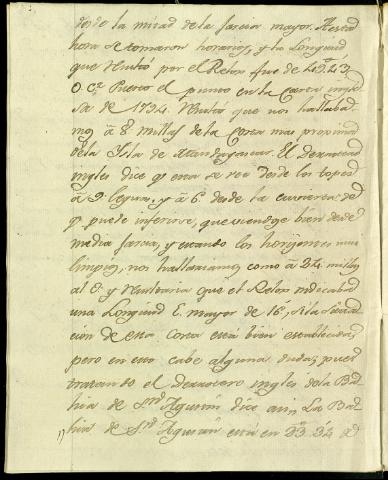 desde la mitad de la farcia mayor. A esta
hora se tomaron horarios, y la Longitud
que resultó por el Relox fue de 49°.43'
O. Cz. Puerto el punto en la Carta ingle
sa de 1794. resultó que nos hallaba
mos a 8 millas de la Costa mas proxima
de la Isla de Madagascar. El Derrotero
ingles dice q.e esta se vee desde los topes
a 9 leguas, y a 6 desde la cuvierta; de
q.e puede inferirse, que viendose bien desde
media farcia, y estando los horizontes muy
limpios, nos hallariamos como a 24 millas
al E. y resultaria que el Relox indicaba
una Longitud E. mayor de 16', si la situa
cion de esta Costa está bien establecida;
pero en esto cabe alguna duda, pues
tratando el derrotero ingles de la Ba
hia de S.n Agustin dice asi, La Ba
hia de S.n Agustin está en 23°. 34'